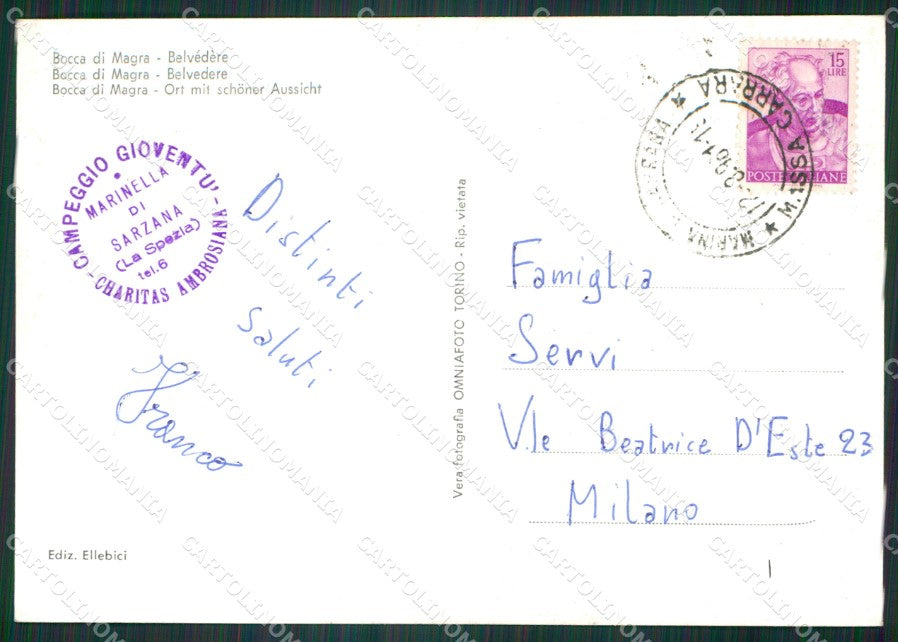 Bocca di Magra - Belvédère
Bocca di Magra - Belvedere
Bocca di Magra - Ort mit schöner Aussicht
CAMPEGGIO GIOVENTU'
MARINELLA
DI
SARZANA
(La Spezia)
tel. 6
- CHARITAS AMBROSIANA -
Distinti
saluti
Franco
Ediz. Ellebici
Vera fotografia OMNIAFOTO TORINO - Rip. vietata
15
LIRE
POSTE ITALIANE
MARINA
★ MASSA CARRARA ★
Famiglia
Servi
V.le Beatrice D'Este 23
Milano
CARTOLINOMANIA